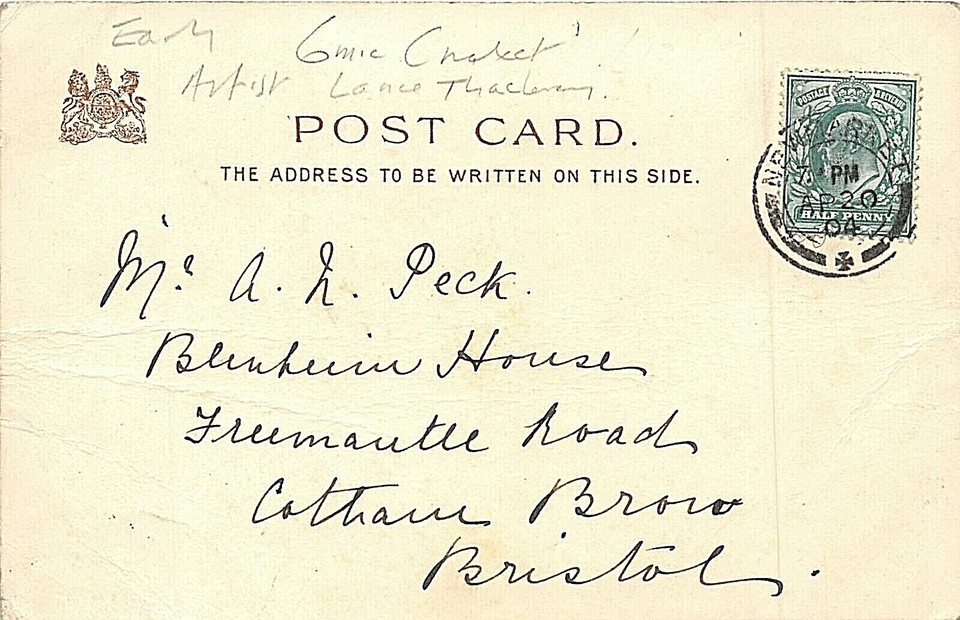 Early
Comic Cricket
Artist Lance Thackeray.
POST CARD.
THE ADDRESS TO BE WRITTEN ON THIS SIDE.
POSTAGE & REVENUE
HALF PENNY
PM
AP 20
04
Mr. A. N. Peck.
Blenheim House
Freemantle Road
Cotham Brow
Bristol.